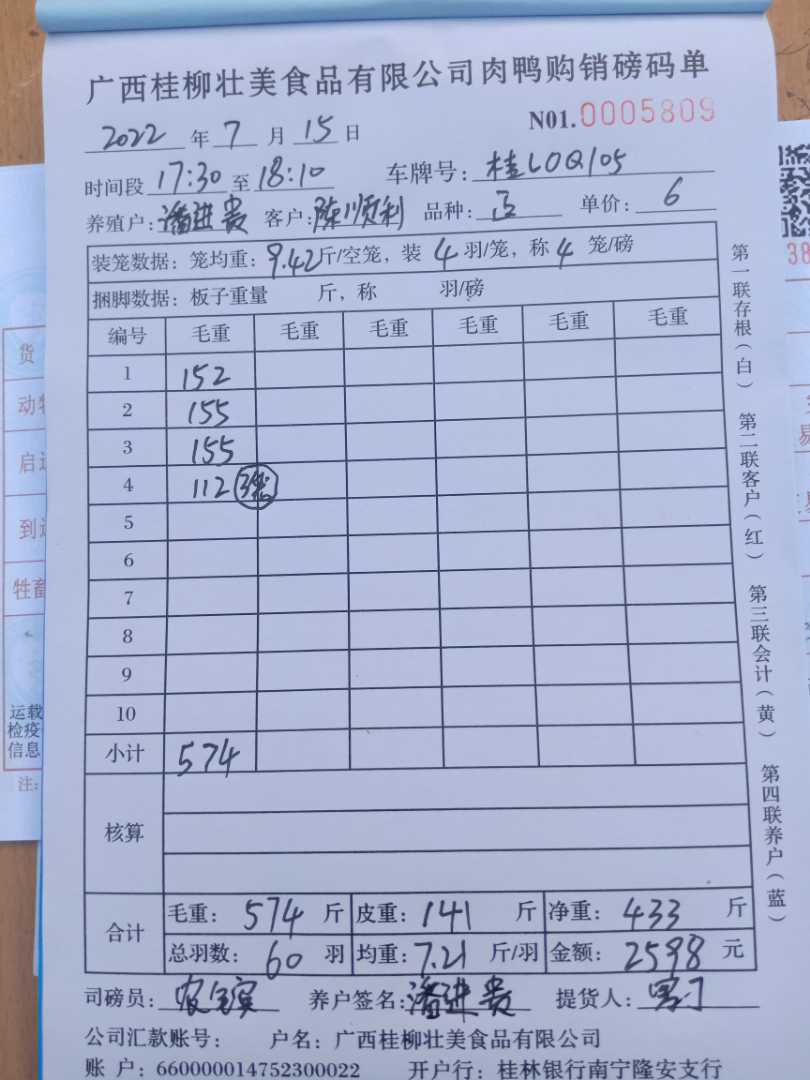 广西桂柳壮美食品有限公司肉鸭购销磅码单
2022 年 7 月 15 日 N01.0005809
时间段 17:30 至 18:10 车牌号：桂L0Q105
养殖户：潘进贵 客户：陈顺利 品种：正 单价：6
装笼数据：笼均重：9.42斤/空笼，装 4 羽/笼，称 4 笼/磅
捆脚数据：板子重量 斤，称 羽/磅
编号 毛重 毛重 毛重 毛重 毛重 毛重
1 152
2 155
3 155
4 112
5
6
7
8
9
10
小计 574
核算
合计 毛重：574 斤 皮重：141 斤 净重：433 斤
总羽数：60 羽 均重：7.21 斤/羽 金额：2598 元
司磅员： 养户签名：潘进贵 提货人：
公司汇款账号： 户名：广西桂柳壮美食品有限公司
账 户：660000014752300022 开户行：桂林银行南宁隆安支行
第一联存根（白） 第二联客户（红） 第三联会计（黄） 第四联养户（蓝）
货
动物
启运
到达
牲畜
运载
检疫
信息
注：
38
易